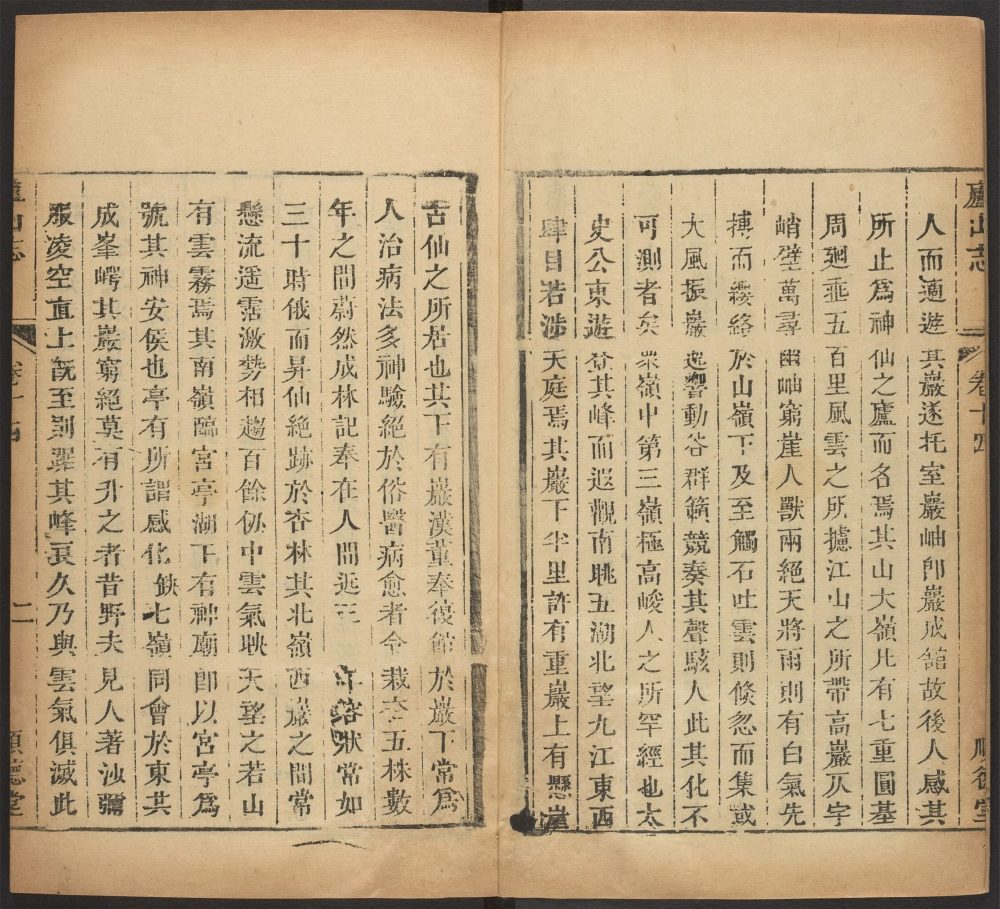 廬山志
卷十四
順德堂
人而適遊其巖遂托室巖岫卽巖成館故後人感其
所止爲神仙之廬而名焉其山大嶺凡有七重圓基
周廻垂五百里風雲之所攄江山之所帶高巖仄宇
峭壁萬尋幽岫窮崖人獸兩絕天將雨則有白氣先
摶而纓絡於山嶺下及至觸石吐雲則倏忽而集或
大風振巖逸響動谷群籟競奏其聲駭人此其化不
可測者矣衆嶺中第三嶺極高峻人之所罕經也太
史公東遊登其峰而遐觀南眺五湖北望九江東西
肆目若涉天庭焉其巖下半里許有重巖上有懸崖
古仙之所居也其下有巖漢董奉復館於巖下常爲
人治病法多神驗絕於俗醫病愈者令栽杏五株數
年之間蔚然成林記奉在人間近三年容狀常如
三十時俄而昇仙絕跡於杏林其北嶺西巖之間常
懸流遥霑激勢相趨百餘仞中雲氣映天望之若山
有雲霧焉其南嶺臨宮亭湖下有神廟卽以宮亭爲
號其神安侯也亭有所謂感化缺七嶺同會於東共
成峯崿其巖窮絕莫有升之者昔野夫見人著沙彌
服凌空直上旣至則踞其峰良久乃與雲氣俱滅此
廬山志
卷十四
二
順德堂